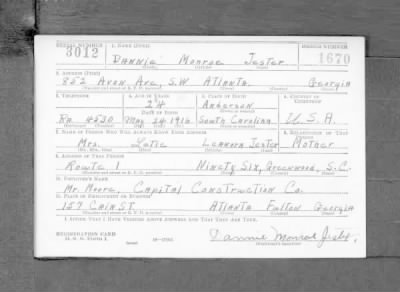 SERIAL NUMBER 1. NAME (Print) ORDER NUMBER
3012 Dannie Monroe Jester 1670
2. ADDRESS (Print)
852 Avon Ave, S.W. Atlanta. Georgia
3. TELEPHONE 4. AGE IN YEARS 5. PLACE OF BIRTH 6. COUNTRY OF CITIZENSHIP
24 Anderson
DATE OF BIRTH
Ra. 4530 May 24 1916 South Carolina U.S.A.
7. NAME OF PERSON WHO WILL ALWAYS KNOW YOUR ADDRESS 8. RELATIONSHIP OF THAT PERSON
Mrs. Leanora Jester Mother
9. ADDRESS OF THAT PERSON
Route 1 Ninety Six, Greenwood, S.C.
10. EMPLOYER'S NAME
Mr. Moore, Capital Construction Co.
11. PLACE OF EMPLOYMENT OR BUSINESS
157 Cain St. Atlanta Fulton Georgia
I AFFIRM THAT I HAVE VERIFIED ABOVE ANSWERS AND THAT THEY ARE TRUE.
REGISTRATION CARD
D. S. S. FORM 1 Dannie Monroe Jester